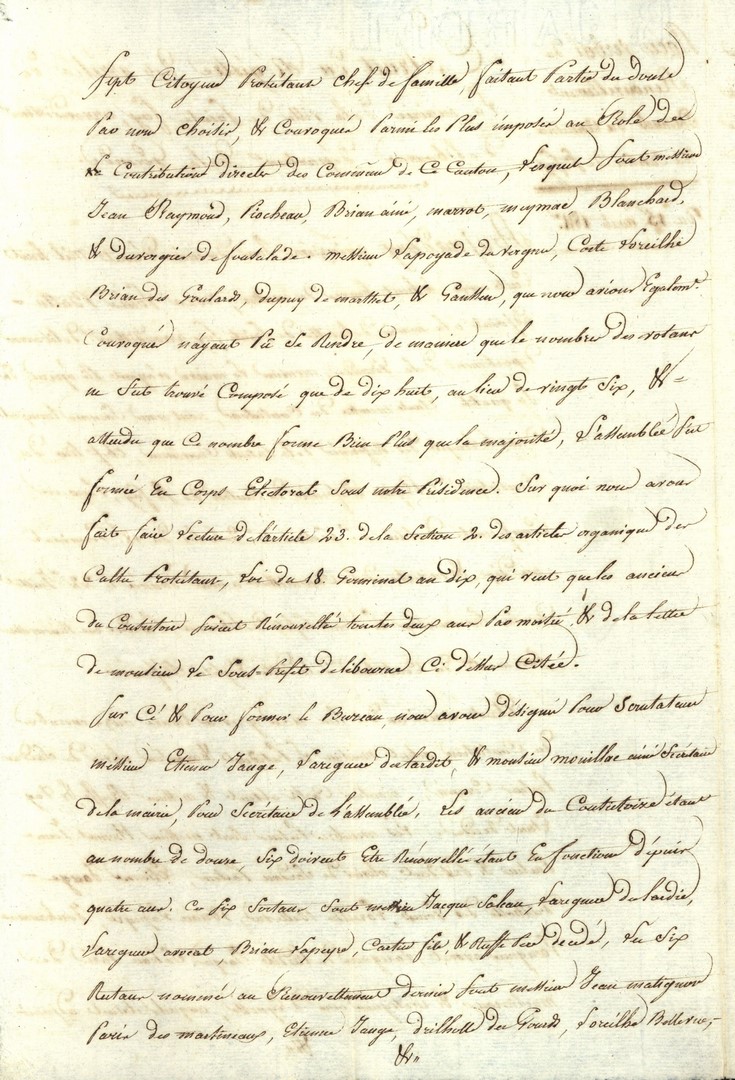 Sept Citoyens Protestans chefs de famille faisant Partie des douze
Par nous choisis, & Convoqués Parmi les Plus imposés au Role des
Contributions directes des Communes de Ce Canton, Lesquels Sont messieurs
Jean Raymond, Piocheau, Brian ainé, marrot, meymac Blanchard,
& duvergier de fonsalade. messieurs Lapoyade duvergne, Coste Loreilhe
Brian des Goulards, dupuy de marthet, & Gautheu, que nous avions Egalemt.
Convoqués n'ayant Pû Se Rendre, de maniere que le nombre des votans
ne S'est trouvé Composé que de dix huit, au lieu de vingt Six, & =
attendu que Ce nombre forme Bien Plus que la majorité, L'assemblée S'est
formée En Corps Electoral Sous notre Présidence. Sur quoi nous avons
fait faire Lecture de l'article 23. de la Section 2. des articles organiques des
Cultes Protestans, Loi du 18. Germinal an dix, qui veut que les anciens
du Consistoire Soient Rénouvellés tous les deux ans Par moitié, & de la lettre
de monsieur Le Sous-Prefet de libourne Ci dessus Citée.
Sur Cé & Pour former le Bureau, nous avons désigné Pour Scrutateurs
messieurs Etienne Jauge, Laregnere du lardit, & monsieur mouillac ainé Secrétaire
de la mairie, Pour Secrétaire de L'assemblée, Les anciens du Consistoire étant
au nombre de douze, Six doivent Etre Rénouvellés étant En fonctions dépuis
quatre ans. Ces Six Sortans Sont messieurs Jacques Saleau, Laregnere du lardit,
Laregnere avocat, Brian Lapeyre, Cartier fils, & Ruffe Pere decedé, Les Six
Restans nommés au Renouvellement dernier Sont messieurs Jean matignon
Paris des martineaux, Etienne Jauge, drilholle des Gourds, Loreilhe Bellerue,-
&"